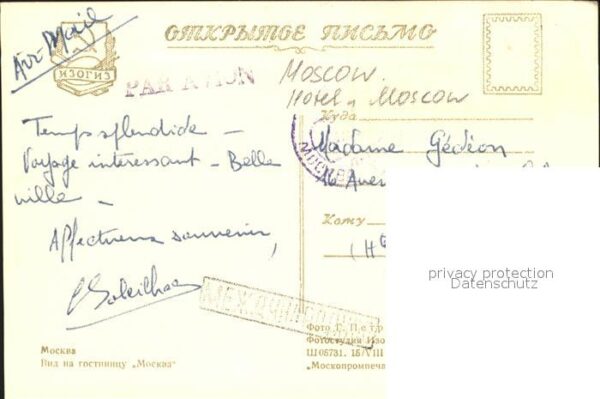 Air-Mail
ИЗОГИЗ
ОТКРЫТОЕ ПИСЬМО
PAR AVION
Moscow.
Hotel Moscow
Куда
Temps splendide –
Voyage intéressant – Belle
ville –
Affectueux souvenir,
Madame Gédéon
16
Кому
МЕЖДУНАРОДНОЕ
privacy protection
Datenschutz
Москва
Вид на гостиницу „Москва"
Фото Г. Петр
Фотостудия Изо
Ш05731. 15/VIII
„Москопромпеча